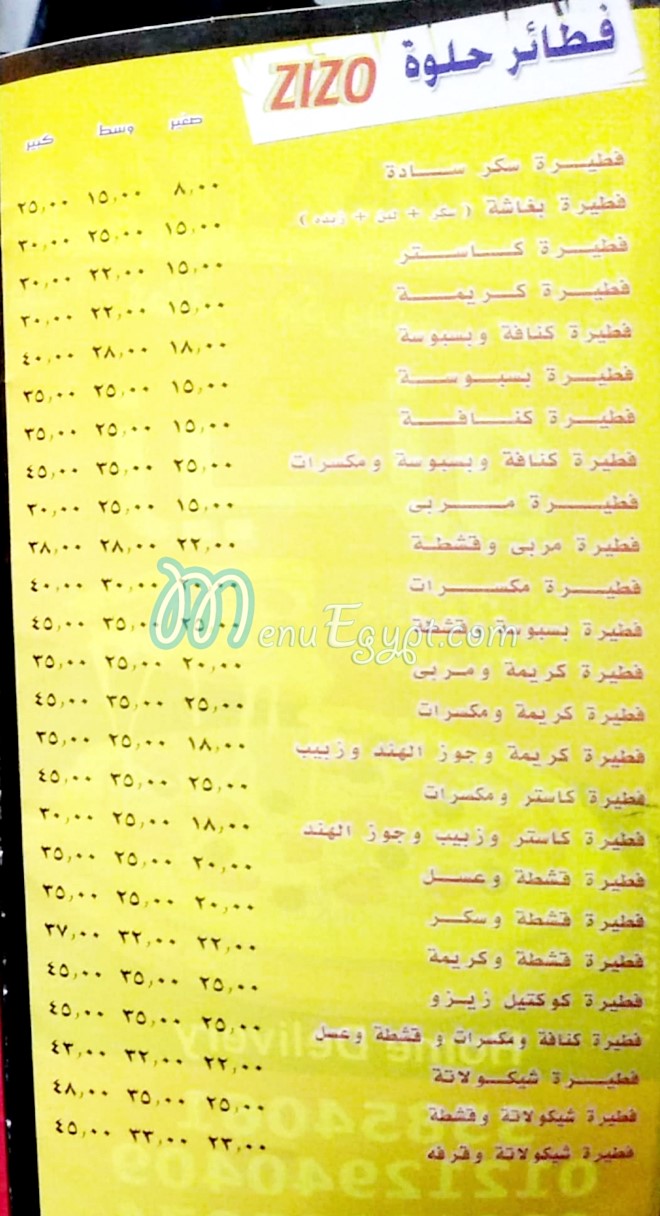 فطائر حلوة ZIZO
صغير وسط كبير
فطيرة سكر سادة ٨,٠٠ ١٥,٠٠ ٢٥,٠٠
فطيرة بغاشة ( سكر + لبن + زبده ) ١٥,٠٠ ٢٥,٠٠ ٣٠,٠٠
فطيرة كاستر ١٥,٠٠ ٢٢,٠٠ ٣٠,٠٠
فطيرة كريمة ١٥,٠٠ ٢٢,٠٠ ٣٠,٠٠
فطيرة كنافة وبسبوسة ١٨,٠٠ ٢٨,٠٠ ٤٠,٠٠
فطيرة بسبوسة ١٥,٠٠ ٢٥,٠٠ ٣٥,٠٠
فطيرة كنافة ١٥,٠٠ ٢٥,٠٠ ٣٥,٠٠
فطيرة كنافة وبسبوسة ومكسرات ٢٥,٠٠ ٣٥,٠٠ ٤٥,٠٠
فطيرة مربى ١٥,٠٠ ٢٥,٠٠ ٣٠,٠٠
فطيرة مربى وقشطة ٢٢,٠٠ ٢٨,٠٠ ٣٨,٠٠
فطيرة مكسرات ٢٠,٠٠ ٣٠,٠٠ ٤٠,٠٠
فطيرة بسبوسة وقشطة ٢٥,٠٠ ٣٥,٠٠ ٤٥,٠٠
MenuEgypt.com
فطيرة كريمة ومربى ٢٠,٠٠ ٢٥,٠٠ ٣٥,٠٠
فطيرة كريمة ومكسرات ٢٥,٠٠ ٣٥,٠٠ ٤٥,٠٠
فطيرة كريمة وجوز الهند وزبيب ١٨,٠٠ ٢٥,٠٠ ٣٥,٠٠
فطيرة كاستر ومكسرات ٢٥,٠٠ ٣٥,٠٠ ٤٥,٠٠
فطيرة كاستر وزبيب وجوز الهند ١٨,٠٠ ٢٥,٠٠ ٣٠,٠٠
فطيرة قشطة وعسل ٢٠,٠٠ ٢٥,٠٠ ٣٥,٠٠
فطيرة قشطة وسكر ٢٠,٠٠ ٢٥,٠٠ ٣٥,٠٠
فطيرة قشطة وكريمة ٢٢,٠٠ ٣٢,٠٠ ٣٧,٠٠
فطيرة كوكتيل زيزو ٢٥,٠٠ ٣٥,٠٠ ٤٥,٠٠
فطيرة كنافة ومكسرات و قشطة وعسل ٢٥,٠٠ ٣٥,٠٠ ٤٥,٠٠
فطيرة شيكولاتة ٢٢,٠٠ ٣٢,٠٠ ٤٣,٠٠
فطيرة شيكولاتة وقشطة ٢٥,٠٠ ٣٥,٠٠ ٤٨,٠٠
فطيرة شيكولاتة وقرفه ٢٣,٠٠ ٣٣,٠٠ ٤٥,٠٠